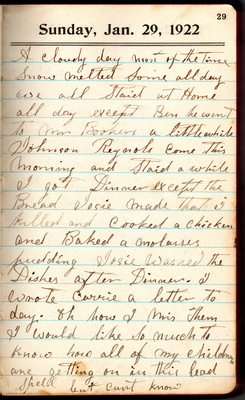 29
Sunday, Jan. 29, 1922
A cloudy day most of the time
Snow melted some all day
we all Staid at Home
all day except Ben he went
to Mr Bookers a little while
Johnson Reynols come this
Morning and Staid a while
I got Dinner except the
Bread Josie made that I
killed and cooked a chicken
and Baked a molasses
pudding Josie Washed the
Dishes after Dinner. I
wrote Carrie a letter to
day. Oh how I Mis Them
I would like So much to
Know how all of my children
are getting on in this bad
Spell but cant know